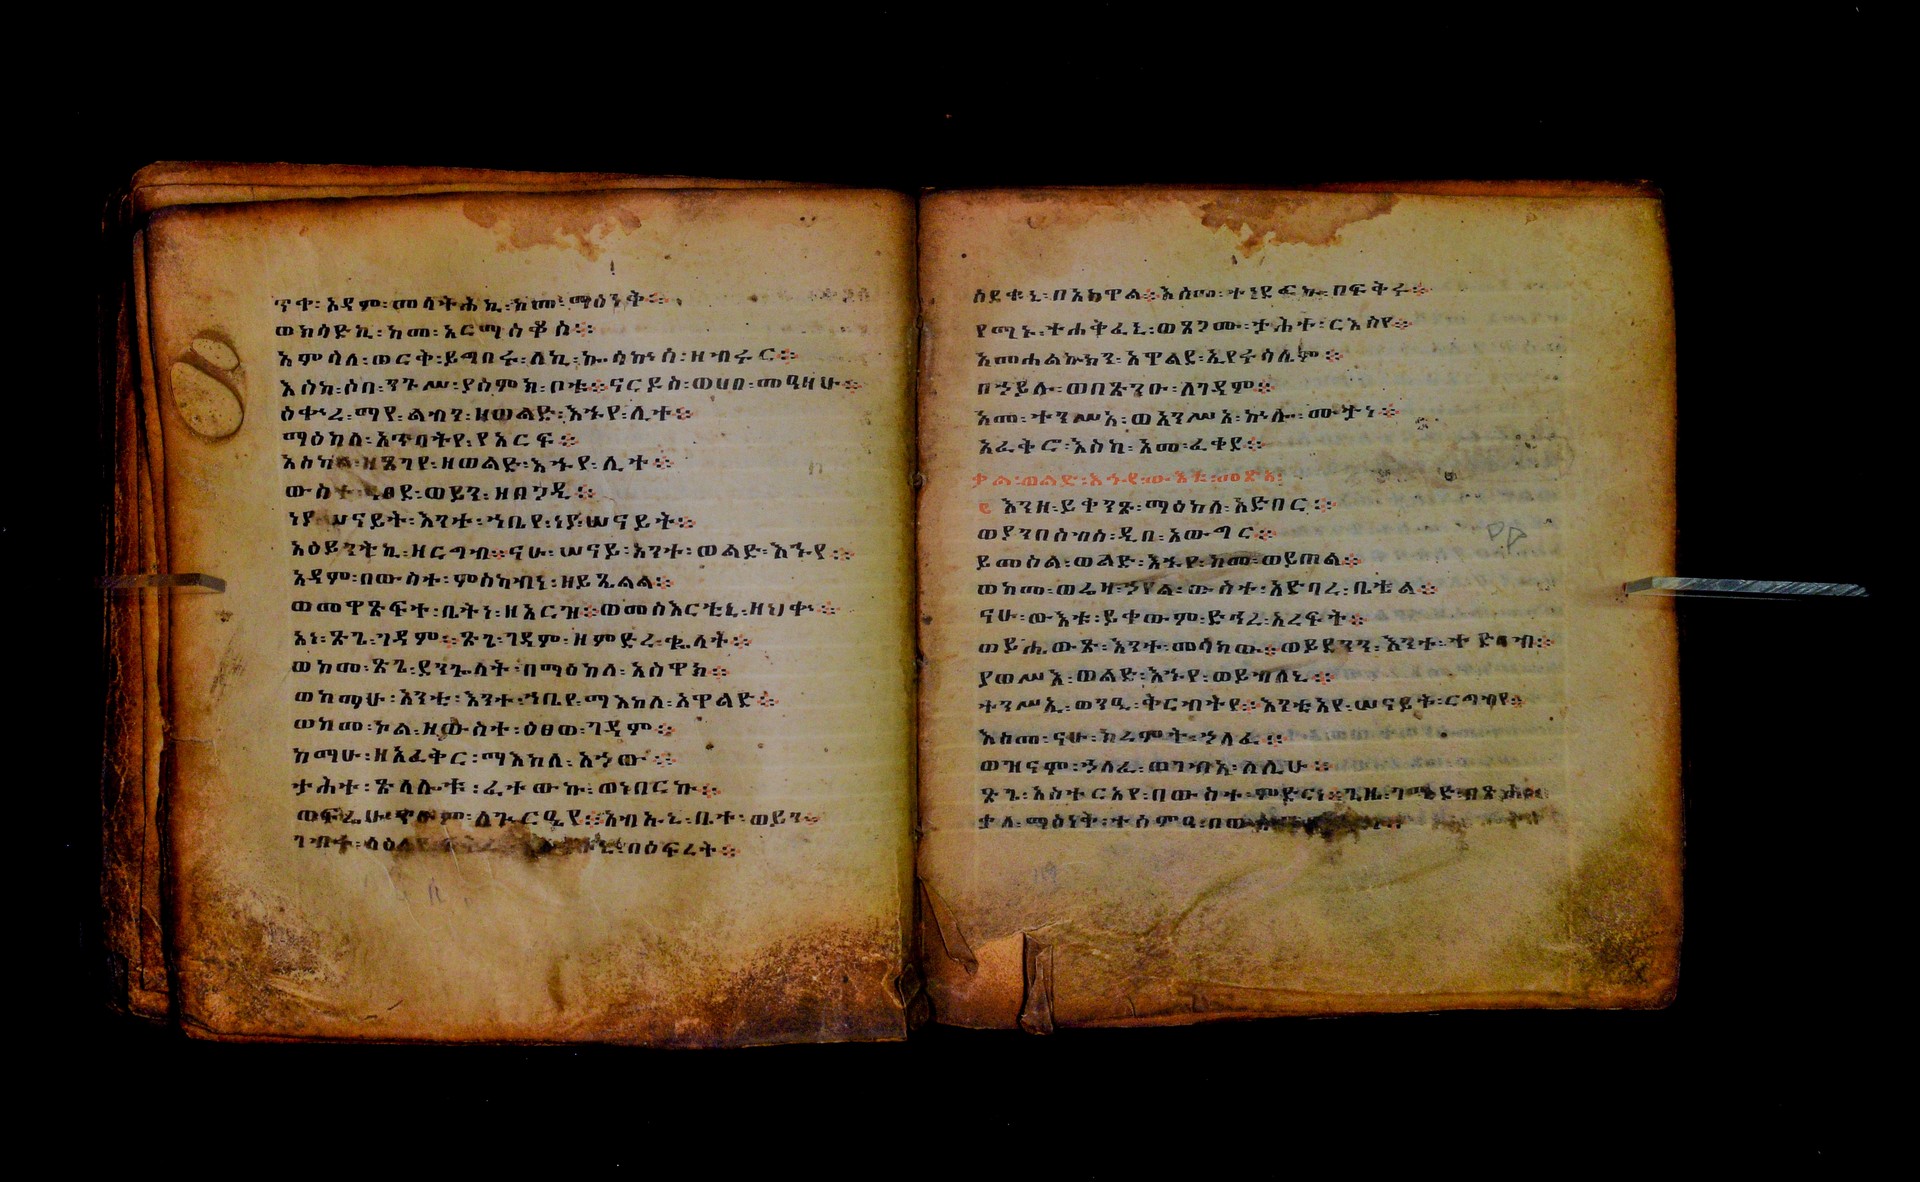 ጥቀ፡ አዳም፡ መላትሕኪ፡ ከመ፡ ማዕነቅ፨
ወክሳድኪ፡ ከመ፡ አርማስቆስ፨
አምሳለ፡ ወርቅ፡ ይግበሩ፡ ለኪ፡ ኵሳኵሰ፡ ዘብሩር፨
እስከ፡ ሶበ፡ ንጉሥ፡ ያሰምክ፡ ቦቱ፨ ናርዶስ፡ ወሀበ፡ መዓዛሁ፨
ዕቍረ፡ ማየ፡ ልብን፡ ዘወልድ፡ እኁየ፡ ሊተ፨
ማዕከለ፡ አጥባትየ፡ የአርፍ፨
አስካል፡ ዘጸገየ፡ ዘወልድ፡ እኁየ፡ ሊተ፨
ውስተ፡ ዐፀደ፡ ወይን፡ ዘበጋዲ፨
ነያ፡ ሠናይት፡ እንተ፡ ኀቤየ፡ ነያ፡ ሠናይት፨
አዕይንትኪ፡ ዘርግብ፨ ናሁ፡ ሠናይ፡ አንተ፡ ወልድ፡ እኁየ፨
አዳም፡ በውስተ፡ ምስካብነ፡ ዘይጼልል፨
ወመዋጽፍተ፡ ቤትነ፡ ዘአርዝ፨ ወመስእርቲነ፡ ዘህቍ፨
አነ፡ ጽጌ፡ ገዳም፨ ጽጌ፡ ገዳም፡ ዘምድረ፡ ቈላት፨
ወከመ፡ ጽጌ፡ ደንጐላት፡ በማዕከለ፡ አስዋክ፨
ወከማሁ፡ አንቲ፡ እንተ፡ ኀቤየ፡ ማእከለ፡ አዋልድ፨
ወከመ፡ ኮል፡ ዘውስተ፡ ዕፀወ፡ ገዳም፨
ከማሁ፡ ዘአፈቅር፡ ማእከለ፡ አኃው፨
ታሕተ፡ ጽላሎቱ፡ ፈተውኩ፡ ወነበርኩ፨
ወፍሬሁ፡ ጥዑም፡ ለጕርዔየ፨ አብኡኒ፡ ቤተ፡ ወይን፨
ገብተ፡ ላዕሌየ፡ በዕፍረት፨
ስደቁኒ፡ በአኰዋል፨ እስመ፡ ተነደፍኩ፡ በፍቅሩ፨
የማኑ፡ ተሐቅፈኒ፡ ወፀጋሙ፡ ታሕተ፡ ርእስየ፨
አመሐልኩክን፡ አዋልደ፡ ኢየሩሳሌም፨
በኃይሉ፡ ወበጽንዑ፡ ለገዳም፨
አመ፡ ተንሥአ፡ ወአንሥአ፡ ኵሉ፡ ሙታነ፨
አፈቅሮ፡ እስከ፡ አመ፡ ፈቀደ፨
ቃል፡ ወልድ፡ እኁየ፡ ውእቱ፡ መጽአ፡
እንዘ፡ ይቀንጽ፡ ማዕከለ፡ አድበር፨
ወያንበሰብስ፡ ዲበ፡ አውግር፨
ይመስል፡ ወልድ፡ እኁየ፡ ከመ፡ ወይጠል፨
ወከመ፡ ወሬዛ፡ ኃየል፡ ውስተ፡ አድባረ፡ ቤቴል፨
ናሁ፡ ውእቱ፡ ይቀውም፡ ድኅረ፡ አረፍት፨
ወይሔውጽ፡ እንተ፡ መሳክው፨ ወይደንን፡ እንተ፡
ያወሥእ፡ ወልድ፡ እኁየ፡ ወይብለኒ፨
ተንሥኢ፡ ወንዒ፡ ቅርብትየ፨ እንቲአየ፡ ሠናይት፡ ርግብየ፨
እስመ፡ ናሁ፡ ክረምት፡ ኃለፈ፨
ወዝናም፡ ኃለፈ፡ ወገብአ፡ ለሊሁ፨
ጽጌ፡ አስተርአየ፡ በውስተ፡ ምድርነ፨ ጊዜ፡ ገሚድ፡ በጽሐ፨
ቃለ፡ ማዕነቅ፡ ተሰምዓ፡